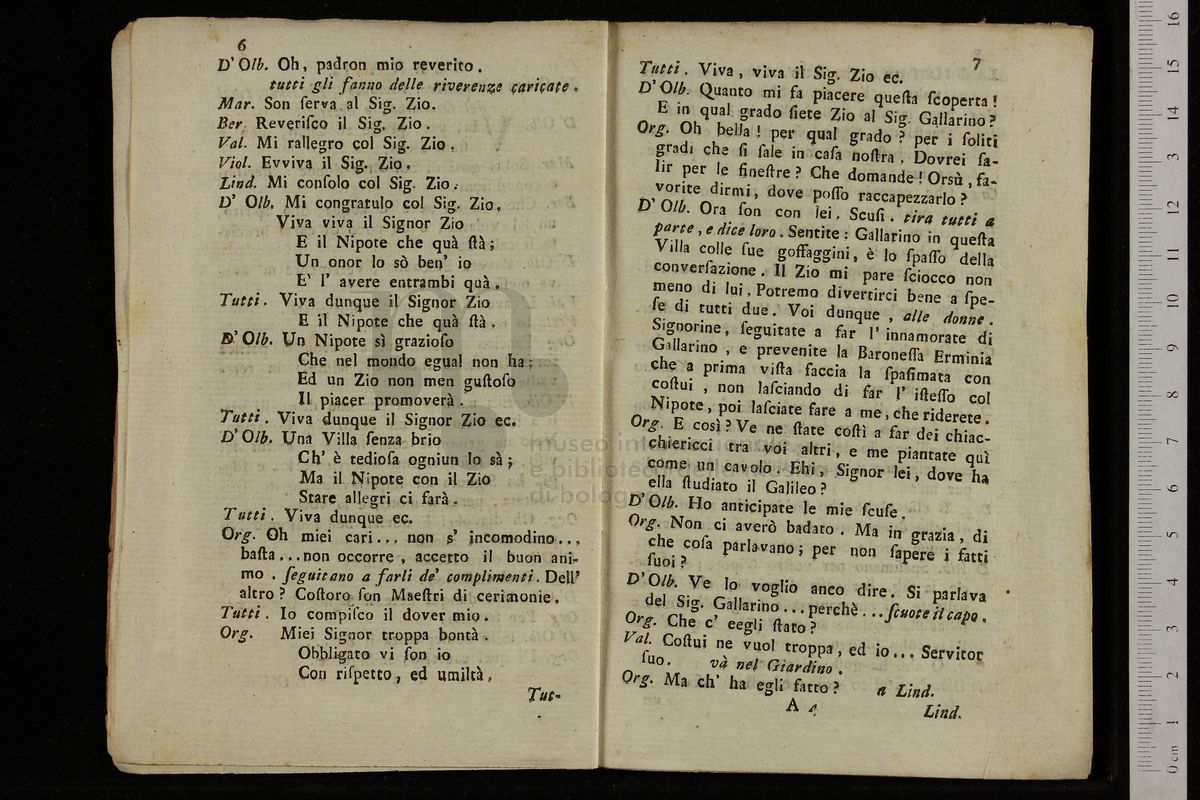 6
D' Olb. Oh, padron mio reverito.
tutti gli fanno delle riverenze caricate.
Mar. Son ſerva al Sig. Zio.
Ber. Reveriſco il Sig. Zio.
Val. Mi rallegro col Sig. Zio.
Viol. Evviva il Sig. Zio.
Lind. Mi conſolo col Sig. Zio.
D' Olb. Mi congratulo col Sig. Zio.
Viva viva il Signor Zio
E il Nipote che quà ſtà;
Un onor lo sò ben' io
E' l' avere entrambi quà.
Tutti. Viva dunque il Signor Zio
E il Nipote che quà ſtà.
D' Olb. Un Nipote sì grazioſo
Che nel mondo egual non ha;
Ed un Zio non men guſtoſo
Il piacer promoverà.
Tutti. Viva dunque il Signor Zio ec.
D' Olb. Una Villa ſenza brio
Ch' è tedioſa ogniun lo sà;
Ma il Nipote con il Zio
Stare allegri ci farà.
Tutti. Viva dunque ec.
Org. Oh miei cari... non s' incomodino...
baſta...non occorre, accetto il buon ani-
mo. ſeguitano a farli de' complimenti. Dell'
altro? Coſtoro ſon Maeſtri di cerimonie.
Tutti. Io compiſco il dover mio.
Org. Miei Signor troppa bontà.
Obbligato vi ſon io
Con riſpetto, ed umiltà,
Tut-
7
Tutti. Viva, viva il Sig. Zio ec.
D' Olb. Quanto mi fa piacere queſta ſcoperta!
E in qual grado ſiete Zio al Sig. Gallarino?
Org. Oh bella! per qual grado? per i ſoliti
gradi che ſi ſale in caſa noſtra. Dovrei ſa-
lir per le fineſtre? Che domande! Orsù, fa-
vorite dirmi, dove poſſo raccapezzarlo?
D' Olb. Ora ſon con lei. Scuſi. tira tutti a
parte, e dice loro. Sentite: Gallarino in queſta
Villa colle ſue goffaggini, è lo ſpaſſo della
converſazione. Il Zio mi pare ſciocco non
meno di lui. Potremo divertirci bene a ſpe-
ſe di tutti due. Voi dunque, alle donne.
Signorine, ſeguitate a far l' innamorate di
Gallarino, e prevenite la Baroneſſa Erminia
che a prima viſta faccia la ſpaſimata con
coſtui, non laſciando di far l' iſteſſo col
Nipote, poi laſciate fare a me, che riderete.
Org. E così? Ve ne ſtate coſtì a far dei chiac-
chiericci tra voi altri, e me piantate quì
come un cavolo. Ehi, Signor lei, dove ha
ella ſtudiato il Galileo?
D' Olb. Ho anticipate le mie ſcuſe.
Org. Non ci averò badato. Ma in grazia, di
che coſa parlavano; per non ſapere i fatti
ſuoi?
D' Olb. Ve lo voglio anco dire. Si parlava
del Sig. Gallarino...perchè...ſcuote il capo.
Org. Che c' eegli ſtato?
Val. Coſtui ne vuol troppa, ed io... Servitor
ſuo. và nel Giardino.
Org. Ma ch' ha egli fatto? a Lind.
A 4
Lind.